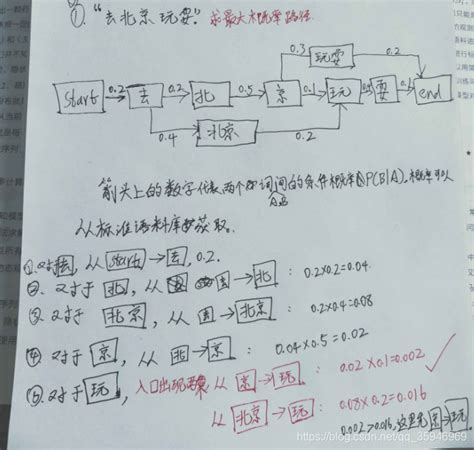 ①. "去北京玩耍" 求最大概率路径.
0.3 玩耍 0.2
start 0.2 去 0.2 北 0.5 京 0.1 玩 耍 0.1 end
0.4 北京 0.2
箭头上的数字代表两个词间的条件概率P(B|A).概率可以
A,B
从标准语料库获取.
①.对于去, 从 start→去, 0.2.
②. 对于 北, 从 去→北: 0.2×0.2=0.04.
③. 对于 北京, 从 去→北京: 0.2×0.4=0.08
④ 对于 京, 从 北→京: 0.04×0.5=0.02
⑤. 对于 玩, 入口出现 从 京→玩: 0.02×0.1=0.002 ✓
从 北京→玩: 0.08×0.2=0.016
0.002>0.016,这里 京→玩
https://blog.csdn.net/qq_35946969